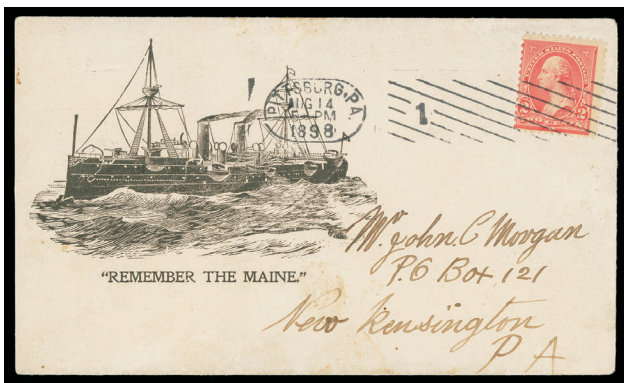 PITTSBURG, PA.
AUG 14
5 PM
1898
1
"REMEMBER THE MAINE."
Mr John C Morgan
P.O Box 121
New Kensington
P A